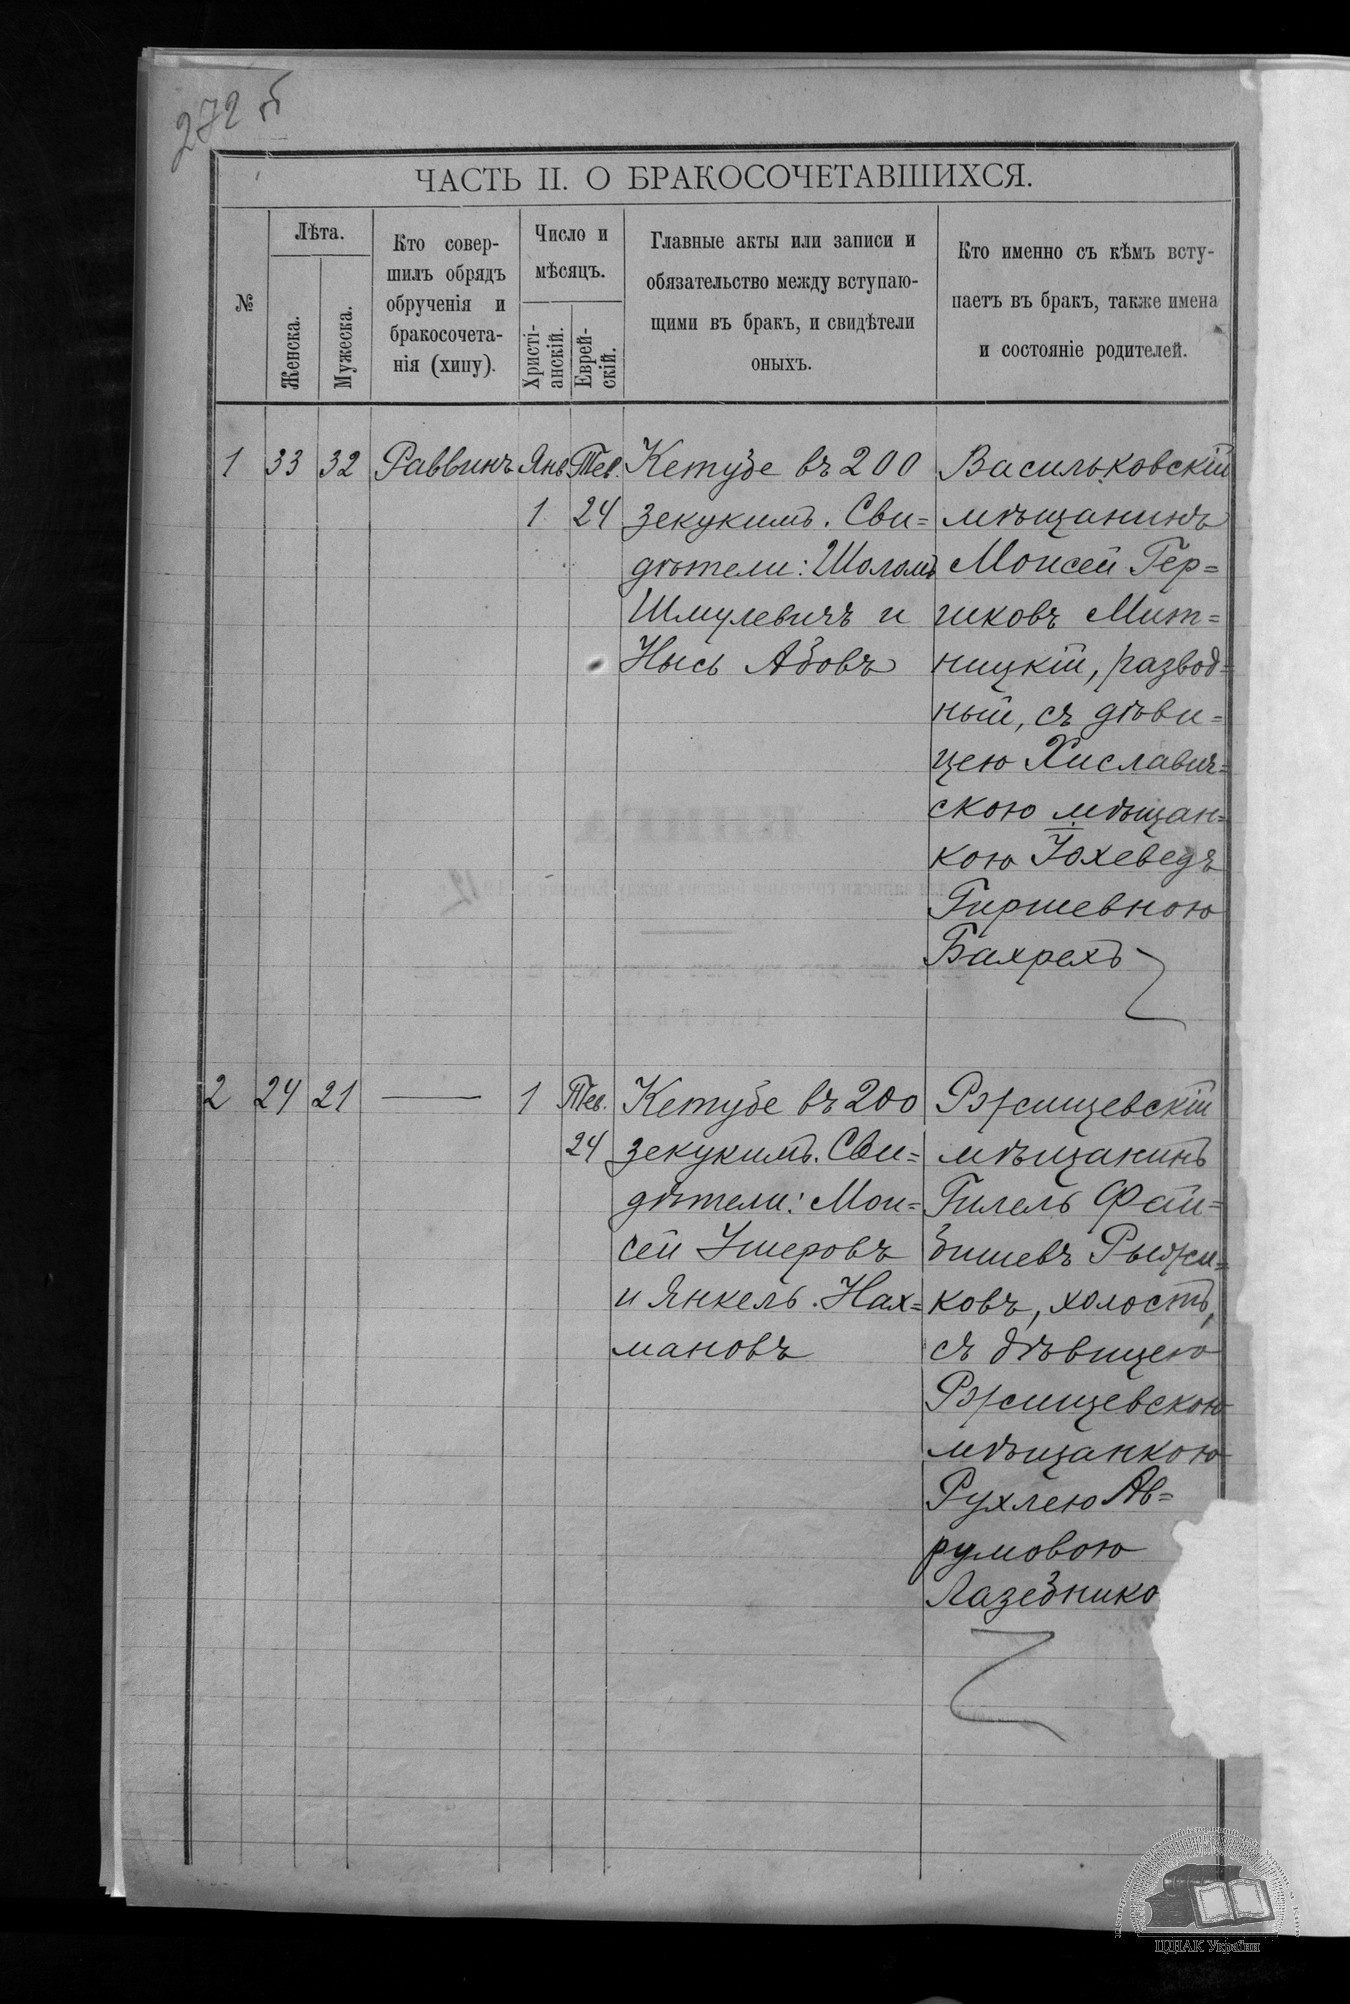 272 б
ЧАСТЬ II. О БРАКОСОЧЕТАВШИХСЯ.
№
Лѣта.
Женска.
Мужеска.
Кто совер-
шилъ обрядъ
обрученія и
бракосочета-
нія (хипу).
Число и
мѣсяцъ.
Христі-
анскій.
Еврей-
скій.
Главные акты или записи и
обязательство между вступаю-
щими въ бракъ, и свидѣтели
оныхъ.
Кто именно съ кѣмъ всту-
паетъ въ бракъ, также имена
и состояніе родителей.
1 33 32 Раввинъ Янв Тев.
1 24
Кетубе въ 200
зекукимъ. Сви=
дѣтели: Шоломъ
Шмулевичъ и
Нысь Абовъ
Васильковскій
мѣщанинъ
Моисей Гер=
шковъ Мит=
ницкій, развод=
ный, съ дѣви=
цею Хиславич=
скою мѣщан=
кою Іохеведъ
Гиршевною
Бахрехъ
2 24 21 — 1 Тев.
24
Кетубе въ 200
зекукимъ. Сви=
дѣтели: Мои=
сей Ушеровъ
и Янкель Нах=
мановъ
Ржищевскій
мѣщанинъ
Гилель Фай=
бишевъ Рыжи=
ковъ, холостъ,
съ дѣвицею
Ржищевскою
мѣщанкою
Рухлею Ав=
румовою
Лазебнико
ЦДІАК України